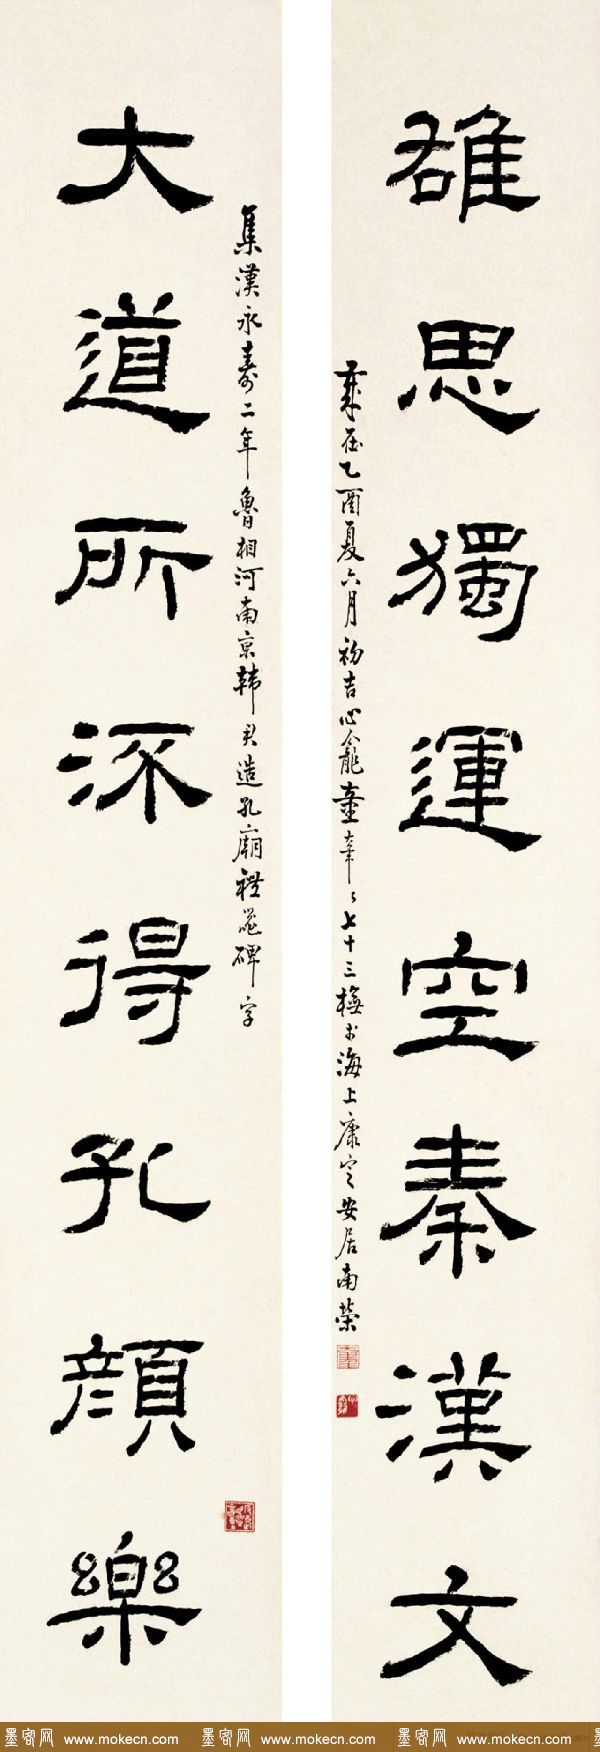 雄思獨運空秦漢文
歲在乙酉夏六月初吉心龕童七十三橅於海上康定安居南榮
集漢永壽二年魯相河南京韓君造孔廟禮器碑字
大道所深得孔顏樂
墨客网 www.mokecn.com 墨客网 www.mokecn.com 墨客网 www.mokecn.com